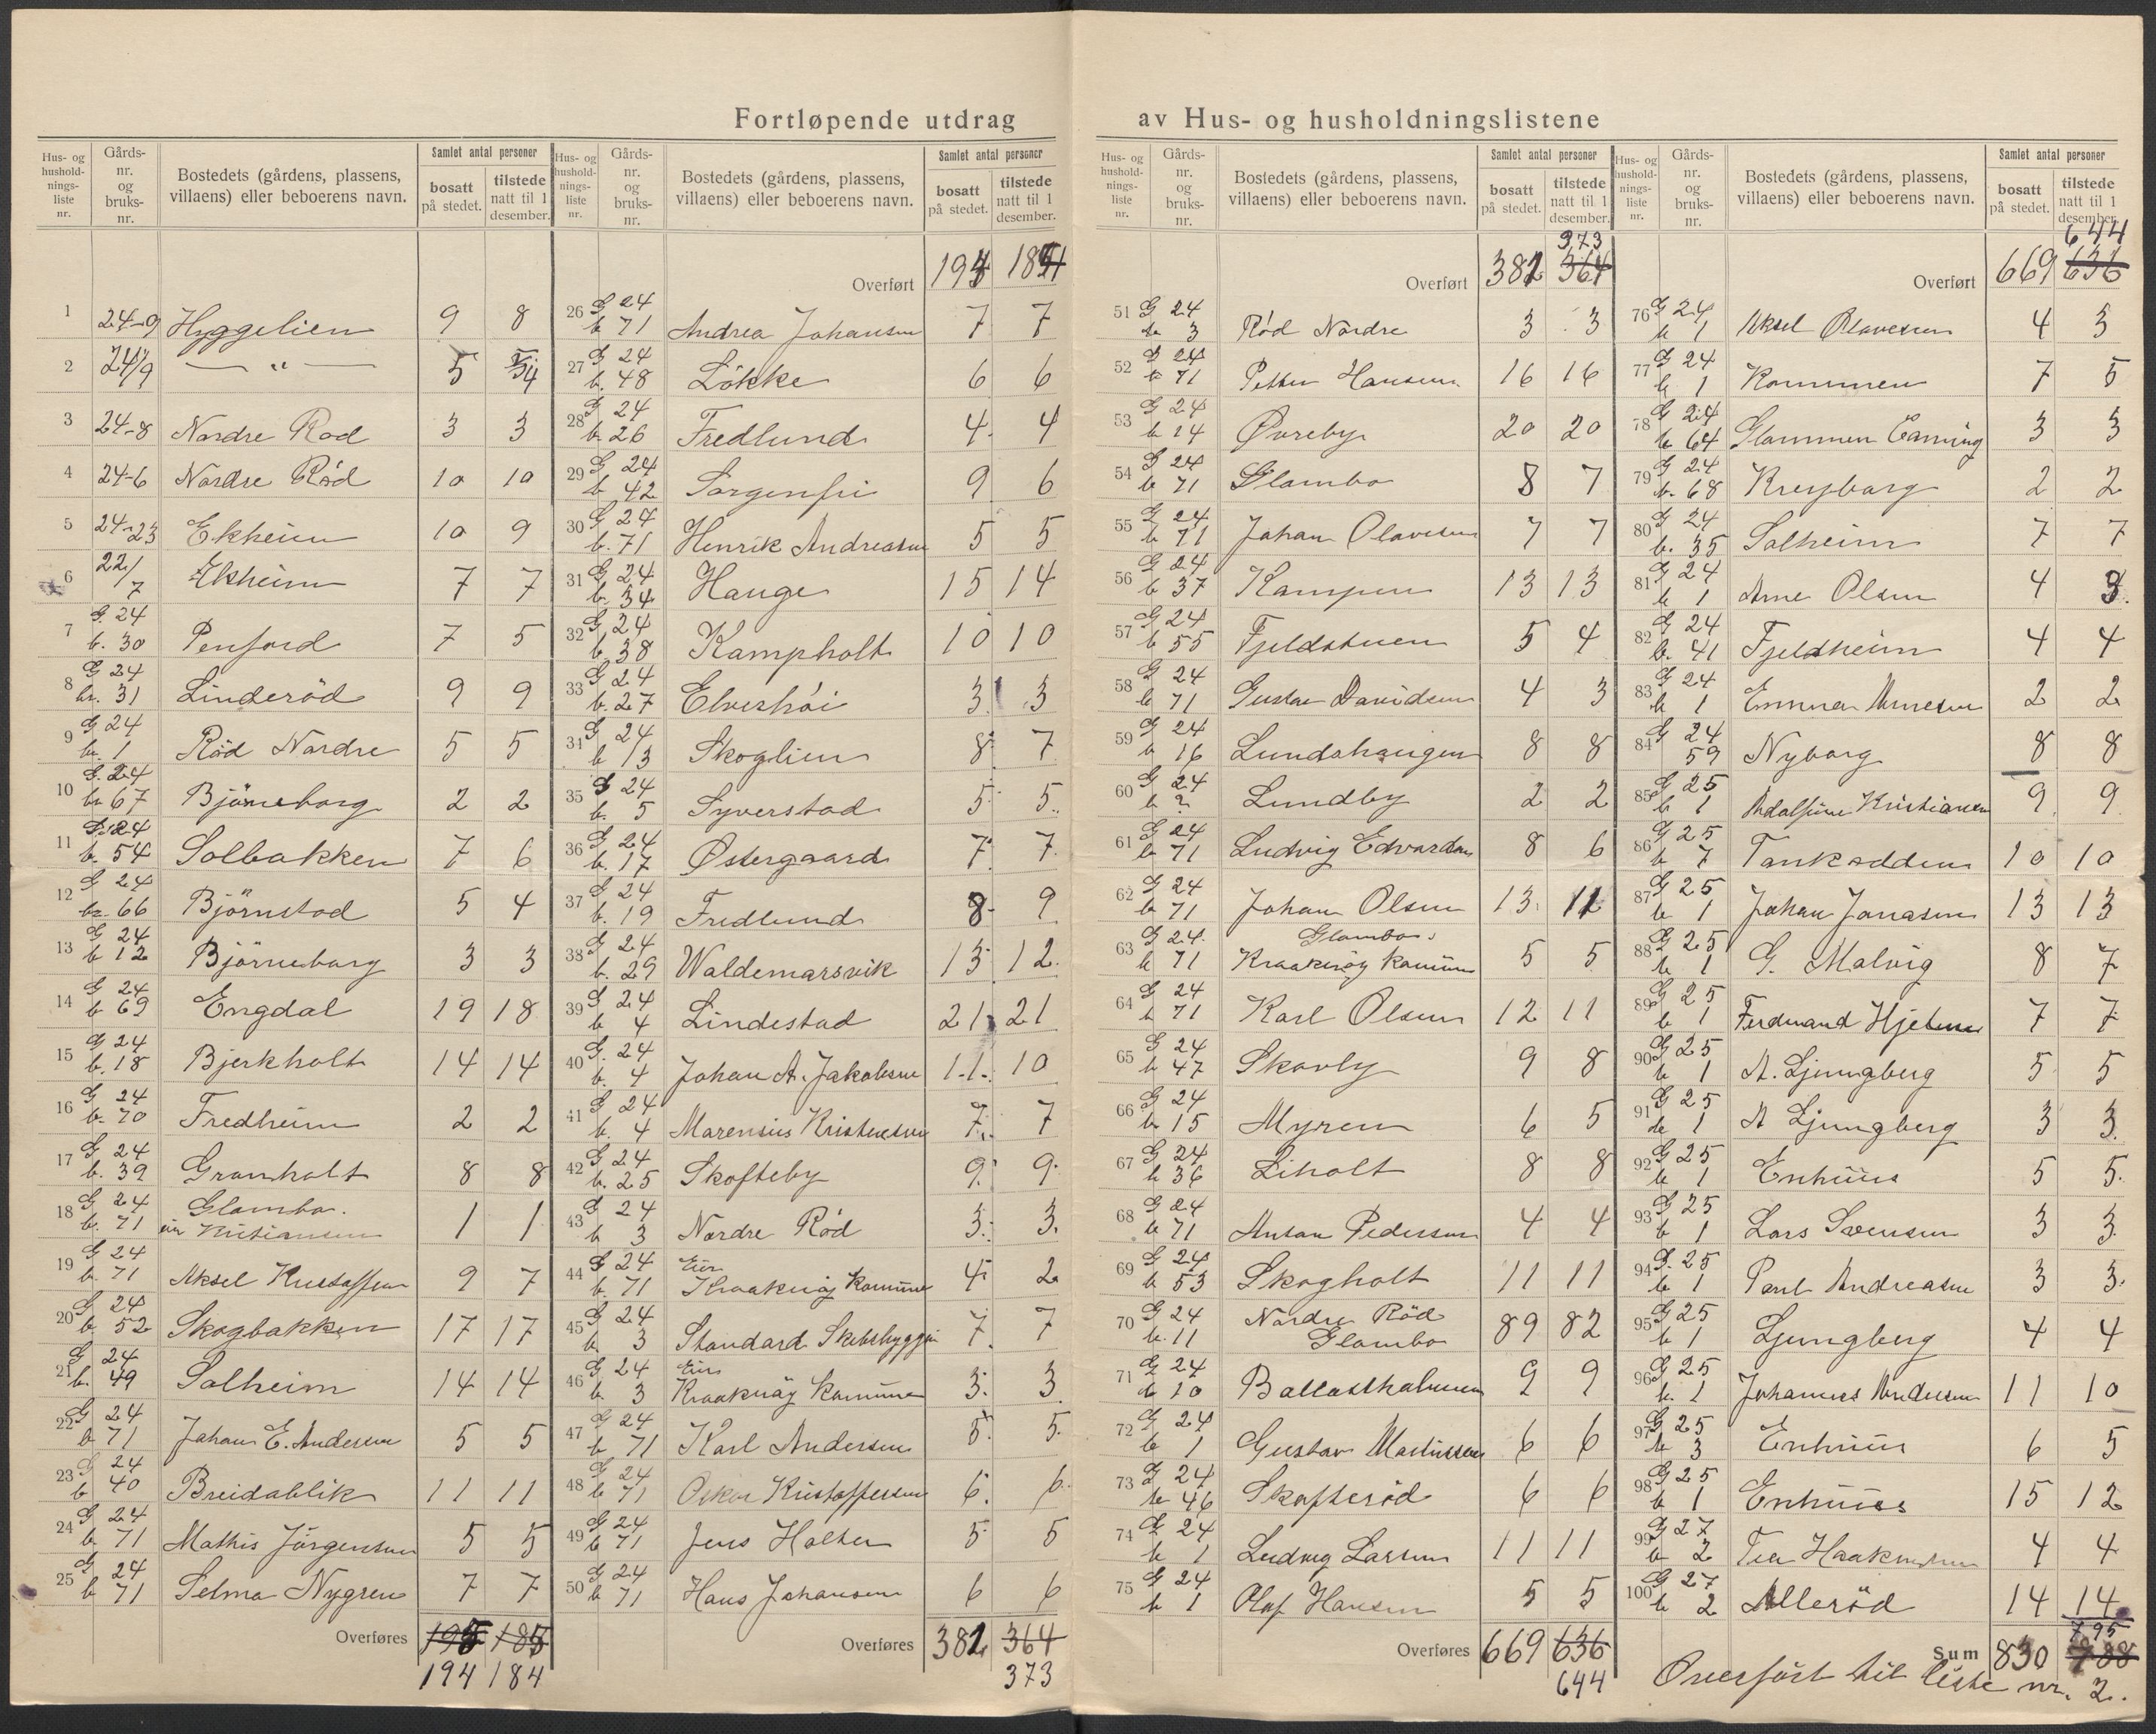 Fortløpende utdrag av Hus- og husholdningslistene
Hus- og husholdnings-liste nr. | Gårds-nr. og bruks-nr. | Bostedets (gårdens, plassens, villaens) eller beboerens navn. | Samlet antal personer | bosatt på stedet. | tilstede natt til 1 desember.
1 | 24-9 | Hyggelien | 9 | 8
2 | 24/9 | — „ — | 5 | 4
3 | 24-8 | Nordre Rød | 3 | 3
4 | 24-6 | Nordre Rød | 10 | 10
5 | 24-23 | Ekheim | 10 | 9
6 | 22/7 | Ekheim | 7 | 7
7 | G. 24 b. 30 | Penford | 7 | 5
8 | G 24 br. 31 | Linderöd | 9 | 9
9 | G 24 br. 1 | Röd Nordre | 5 | 5
10 | G. 24 br 67 | Björneborg | 2 | 2
11 | G. 24 b. 54 | Solbakken | 7 | 6
12 | G 24 br. 66 | Björnstad | 5 | 4
13 | G 24 b 12 | Björneborg | 3 | 3
14 | G 24 b 69 | Engdal | 19 | 18
15 | G 24 b. 18 | Bjerkholt | 14 | 14
16 | G 24 b. 70 | Fredheim | 2 | 2
17 | G 24 b. 39 | Granholt | 8 | 8
18 | G 24 b. 71 | Glombo. Kristiansen | 1 | 1
19 | G 24 b. 71 | Aksel Kristoffersen | 9 | 7
20 | G 24 b. 52 | Skogbakken | 17 | 17
21 | G 24 b. 49 | Solheim | 14 | 14
22 | G 24 b 71 | Johan E. Andersen | 5 | 5
23 | G 24 b 40 | Breidablik | 11 | 11
24 | G 24 b. 71 | Mathis Jörgensen | 5 | 5
25 | G 24 b 71 | Selma Nygren | 7 | 7
Overføres | 195 | 185
194 | 184
Hus- og husholdnings-liste nr. | Gårds-nr. og bruks-nr. | Bostedets (gårdens, plassens, villaens) eller beboerens navn. | Samlet antal personer | bosatt på stedet. | tilstede natt til 1 desember.
Overført | 194 | 184
26 | G 24 b 71 | Andrea Johansen | 7 | 7
27 | G 24 b. 48 | Lökke | 6 | 6
28 | G 24 b. 26 | Fredlund | 4 | 4
29 | G 24 b 42 | Sorgenfri | 9 | 6
30 | G 24 b. 71 | Henrik Andreassen | 5 | 5
31 | G 24 b. 34 | Hauge | 15 | 14
32 | G 24 b. 38 | Kampholt | 10 | 10
33 | G 24 b. 27 | Elveshöi | 3 | 3
34 | G 24 b 13 | Skoglien | 8 | 7
35 | G 24 b. 5 | Syverstad | 5 | 5
36 | G 24 b. 17 | Østergaard | 7 | 7
37 | G 24 b. 19 | Fredlund | 8 | 9
38 | G 24 b. 29 | Waldemarsvik | 13 | 12
39 | G 24 b 4 | Lindestad | 21 | 21
40 | G. 24 b. 4 | Johan A. Jakobsen | 11 | 10
41 | G 24 b. 4 | Marensius Kristensen | 7 | 7
42 | G 24 b. 25 | Skofteby | 9 | 9
43 | G 24 b 3 | Nordre Röd | 3 | 3
44 | G 24 b. 71 | Eier Kraakeröy Komune | 4 | 2
45 | G 24 b. 3 | Standard Skibsbyggeri | 7 | 7
46 | G 24 b. 3 | Eier Kraakeröy Komune | 3 | 3
47 | G 24 b. 71 | Karl Andersen | 5 | 5
48 | G 24 b 71 | Oskar Kristoffersen | 6 | 6
49 | G 24 b 71 | Jens Holter | 5 | 5
50 | G 24 b 71 | Hans Johansen | 6 | 6
Overføres | 382 | 364
373
Hus- og husholdnings-liste nr. | Gårds-nr. og bruks-nr. | Bostedets (gårdens, plassens, villaens) eller beboerens navn. | Samlet antal personer | bosatt på stedet. | tilstede natt til 1 desember.
373
Overført | 382 | 364
51 | G 24 br 3 | Röd Nordre | 3 | 3
52 | G 24 b 71 | Petter Hansen | 16 | 16
53 | G 24 b 14 | Øvreby | 20 | 20
54 | G 24 b 71 | Glombo | 8 | 7
55 | G 24 b 71 | Johan Olavesen | 7 | 7
56 | G 24 b 37 | Kampen | 13 | 13
57 | G 24 b 55 | Fjeldstuen | 5 | 4
58 | G 24 b 71 | Gustav Davidsen | 4 | 3
59 | G 24 b 16 | Lundshaugen | 8 | 8
60 | G 24 b ? | Lundby | 2 | 2
61 | G 24 b 71 | Ludvig Edvardsen | 8 | 6
62 | G 24 b 71 | Johan Olsen | 13 | 12
63 | G 24 b 71 | Glombo. Kraakeröy Komune | 5 | 5
64 | G 24 b 71 | Karl Olsen | 12 | 11
65 | G 24 b 47 | Skovly | 9 | 8
66 | G 24 b. 15 | Myren | 6 | 5
67 | G 24 b 36 | Liholt | 8 | 8
68 | G 24 b 71 | Anton Pedersen | 4 | 4
69 | G 24 b 53 | Skogholt | 11 | 11
70 | G 24 b. 11 | Nordre Röd Glombo | 89 | 82
71 | G 24 b 10 | Ballastholmen | 9 | 9
72 | G 24 b 1 | Gustav Martinsen | 6 | 6
73 | G 24 br 46 | Skofteröd | 6 | 6
74 | G 24 b 1 | Ludvig Larsen | 11 | 11
75 | G 24 b 1 | Olaf Hansen | 5 | 5
Overføres | 669 | 636
644
Hus- og husholdnings-liste nr. | Gårds-nr. og bruks-nr. | Bostedets (gårdens, plassens, villaens) eller beboerens navn. | Samlet antal personer | bosatt på stedet. | tilstede natt til 1 desember.
644
Overført | 669 | 636
76 | G 24 b 1 | Aksel Olavesen | 4 | 3
77 | G 24 b 1 | Kommen | 7 | 5
78 | G 24 b 64 | Glommen | 3 | 3
79 | G 24 b. 68 | Kreyborg | 2 | 2
80 | G 24 b. 35 | Solheim | 7 | 7
81 | G 24 b 1 | Arne Olsen | 4 | 3
82 | G 24 b. 41 | Fjeldheim | 4 | 4
83 | G 24 b 1 | Emma Arnesen | 2 | 2
84 | G 24 59 | Nyborg | 8 | 8
85 | G 25 b 1 | Adolfine Kristiansen | 9 | 9
86 | G 25 b 7 | Tankodden | 10 | 10
87 | G 25 b 1 | Johan Jonasen | 13 | 13
88 | G 25 b 1 | G. Malvig | 8 | 7
89 | G 25 b 1 | Ferdinand Hjelmer | 7 | 7
90 | G 25 b 1 | A. Ljungberg | 5 | 5
91 | G 25 br 1 | A Ljungberg | 3 | 3
92 | G 25 b 1 | Enhuus | 5 | 5
93 | G 25 b 1 | Lars Svensen | 3 | 3
94 | G. 25 b 1 | Paul Andreasen | 3 | 3
95 | G 25 b 1 | Ljungberg | 4 | 4
96 | G 25 b. 1 | Johannes Andersen | 11 | 10
97 | G 25 br 3 | Enhuus | 6 | 5
98 | G 25 b 1 | Enhuus | 15 | 12
99 | G 27 b 2 | Haakensen | 4 | 4
100 | G 27 b 2 | Alleröd | 14 | 14
795
Sum | 830 | 788
Overført til liste nr. 2.